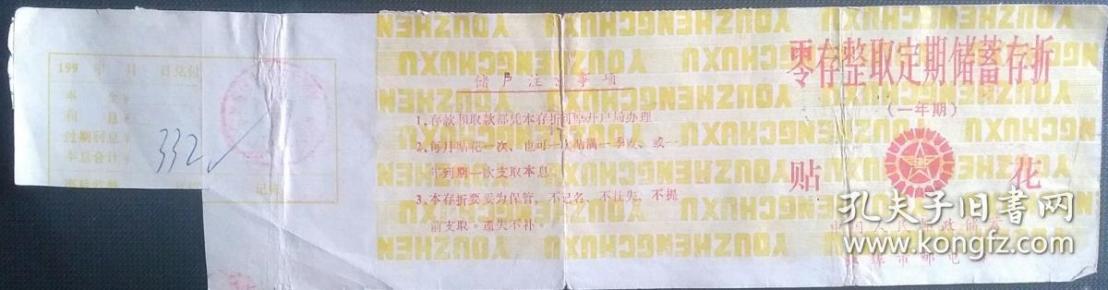 零存整取定期储蓄存折
（一年期）
贴 花
孔夫子旧书网
www.kongfz.com
储户注意事项
1、存款和取款都凭本存折到原开户局办理
2、每月贴花一次、也可一次贴满一季度、或一
年到期一次支取本息。
3、本存折要妥为保管，不记名、不挂失，不提
前支取。遗失不补。
199 年 月 日兑付
本 金￥
利 息￥
过期利息￥
本息合计￥
332
YOUZHENGCHUXU